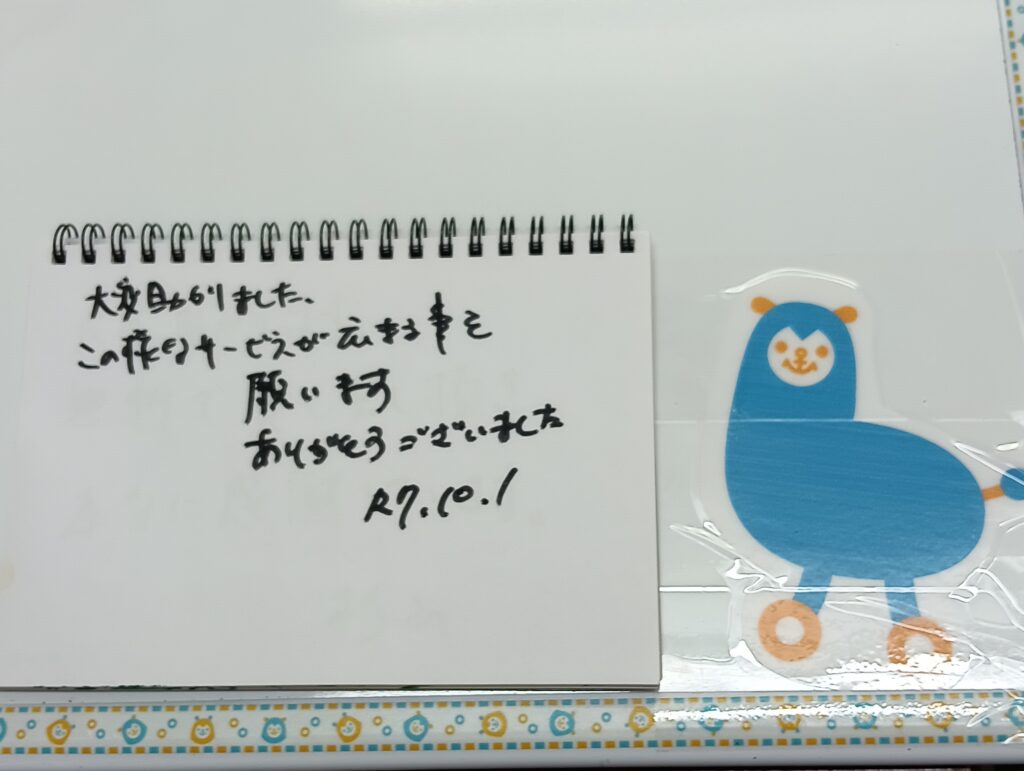 大変助かりました、
この様なサービスが広まる事を
願います
ありがとうございました
R7.10.1